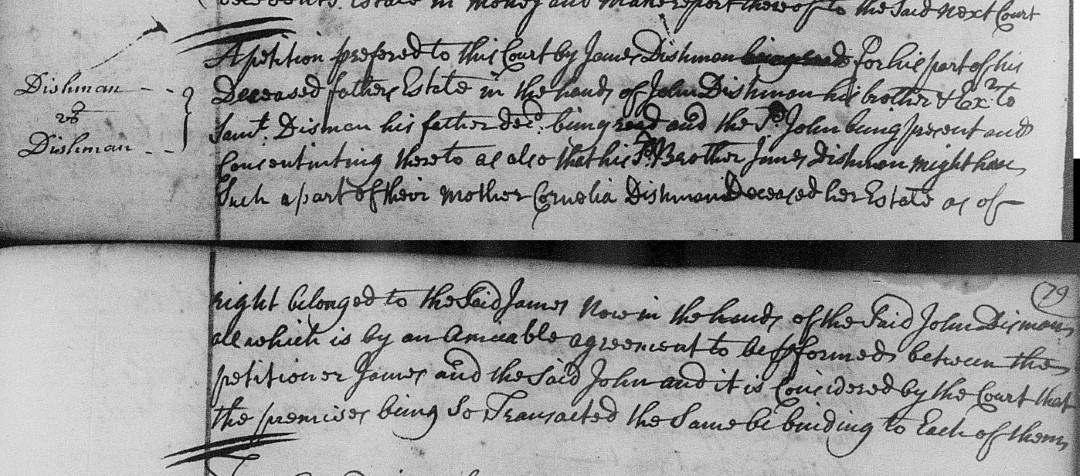 decedents Estate in money and make report thereof to the said next Court
A petition prefered to this Court by James Dishman being read for his part of his
Dishman
vs
Dishman
Deceased fathers Estate in the hands of John Dishman his brother & Exr. to
Saml. Disman his father decd. being read and the Sd. John being present and
Concentinting thereto as also that his Sd. Brother James Dishman might have
Such a part of their mother Cornelia Dishman Deceased her Estate as of
79
right belonged to the Said James Now in the hands of the Said John Disman
all which is by an amicable agreement to be pformed between the
petitioner James and the said John and it is Considered by the Court that
the premises being So Transacted the Same be binding to Each of them